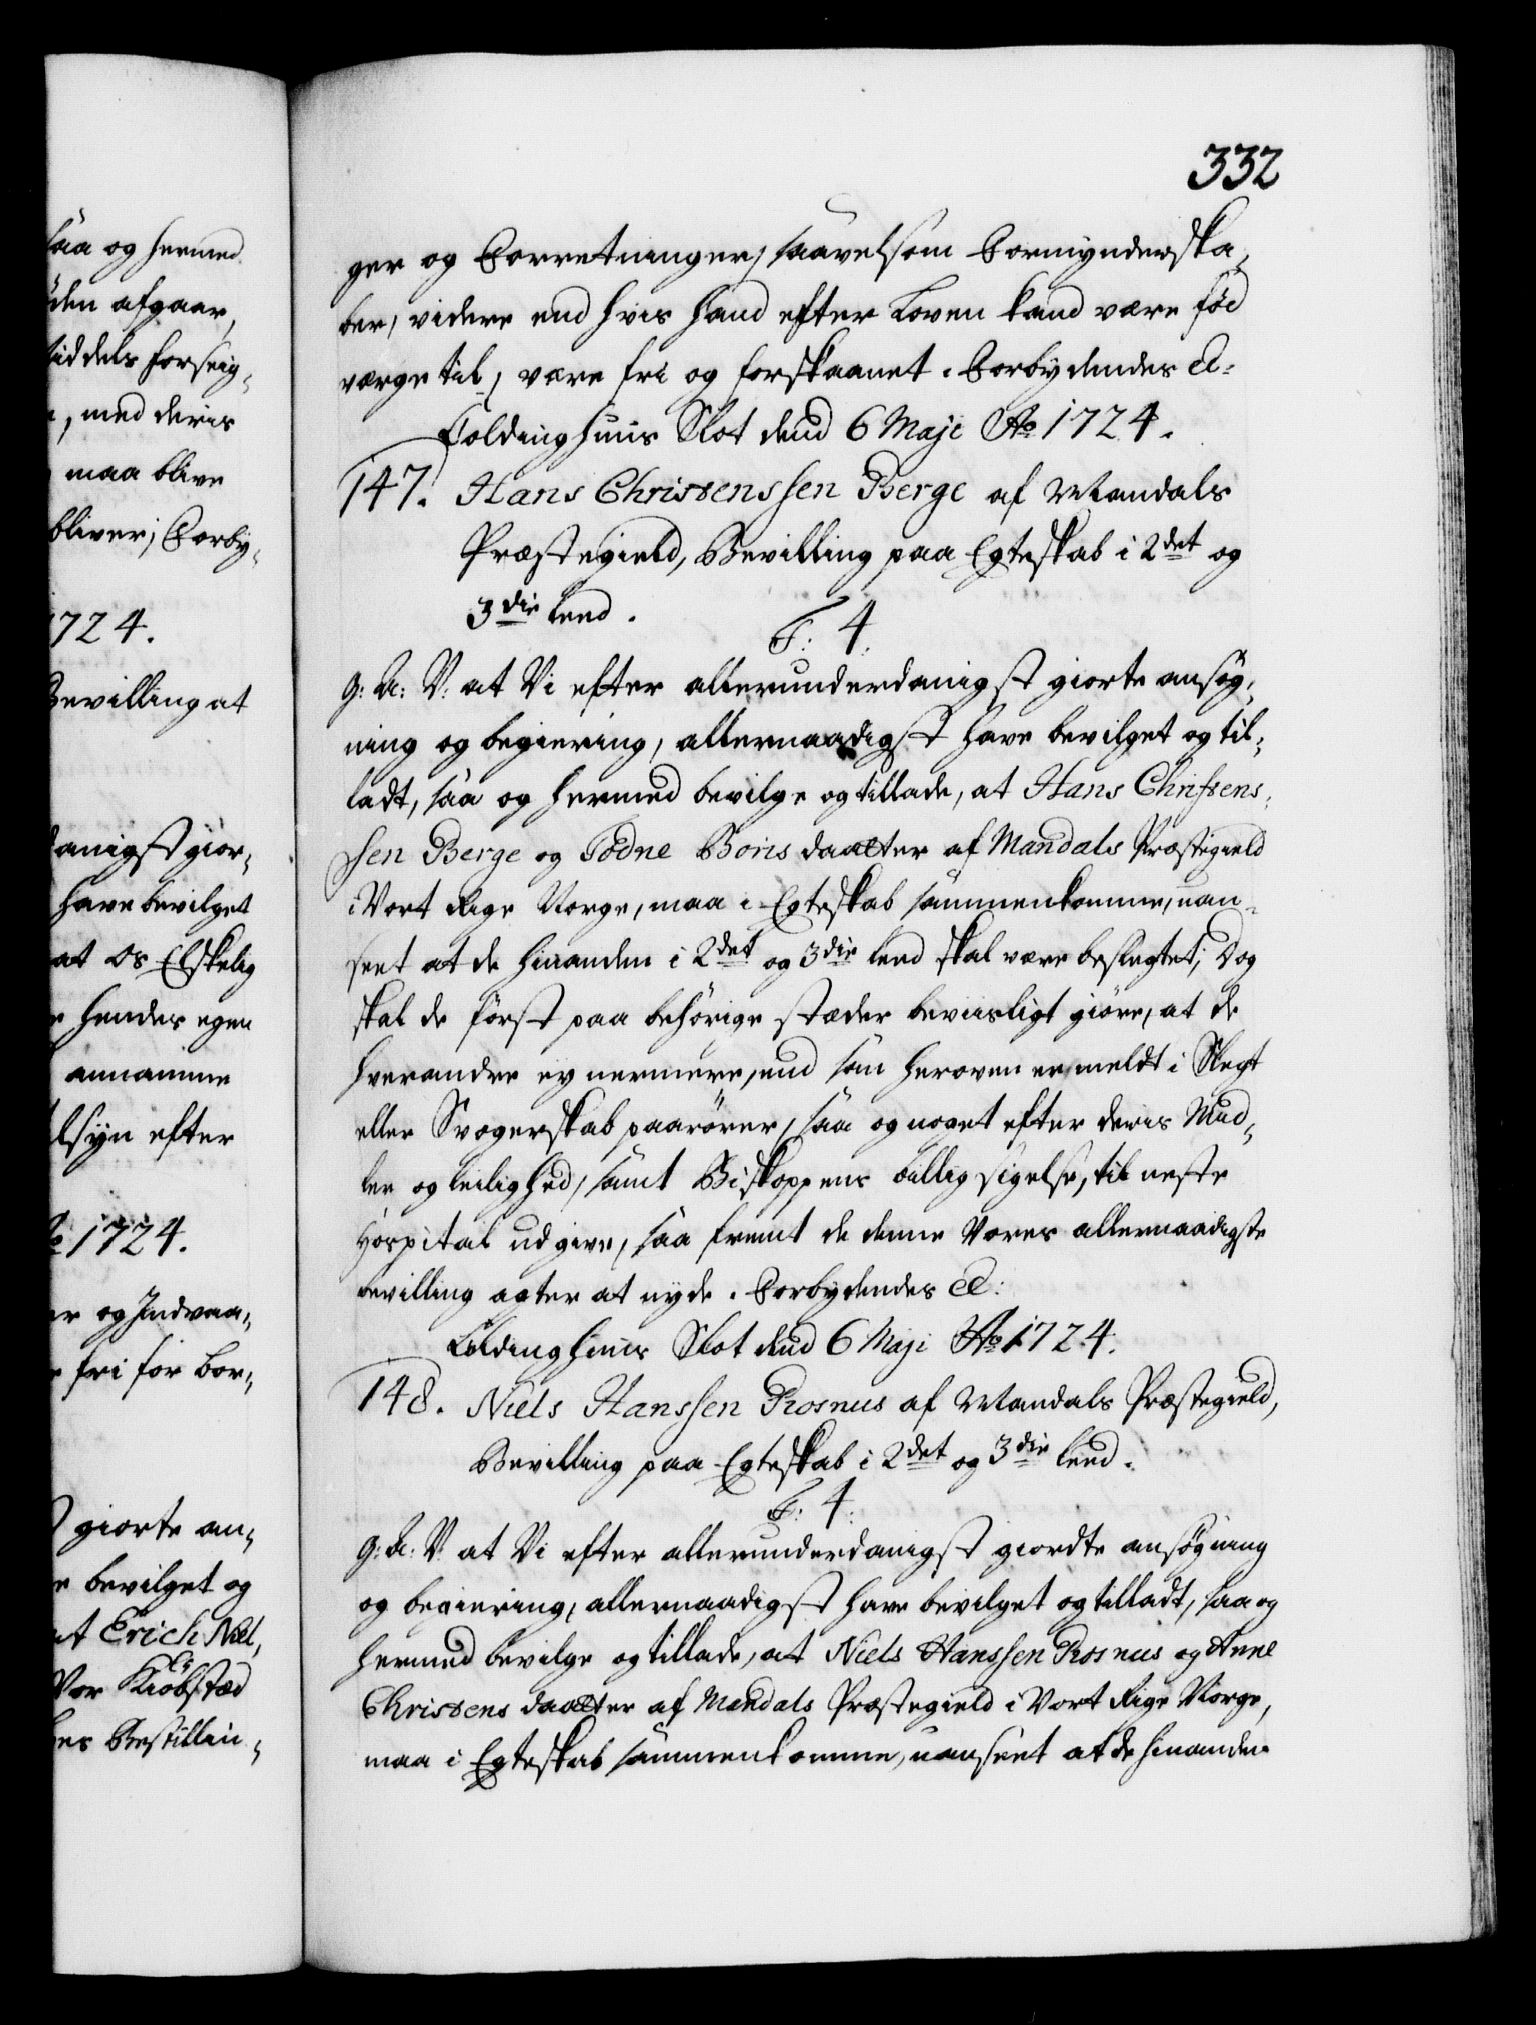 332
saa og hermed
den afgaar,
middels forseig-
, med deris
maa blive
bliver; Forby-
1724.
Bevilling at
danigst gior-
have bevilget
at Os Elskelig
hendes egen
annamme
tilsyn efter
Ao 1724.
er og Indvaa-
fri for bor-
giorte an-
bevilget og
at Erich Niel-
Vor Kiöbsted
Bestillin-
ger og Forretninger, saavelsom Formynderska-
ber, videre end hvis hand efter Loven kand være fød
værge til, være fri og forskaanet. Forbydendes etc:
Coldinghuus Slot dend 6 Maji Ao 1724.
147. Hans Christenssen Berge af Mandals
Præstegield, Bevilling paa Egteskab i 2det og
3die Leed.
F: 4.
G: A: V: at Vi efter allerunderdanigst giorte ansøg-
ning og begiering, allernaadigst have bevilget og til-
ladt, saa og hermed bevilge og tillade, at Hans Christens-
sen Berge og Todne Boris daatter af Mandals Præstegield
i Vort Rige Norge, maa i Egteskab sammenkomme, uan-
seet at de hinanden i 2det og 3die leed skal være beslegtet; Dog
skal de først paa behörige stæder beviisligt giøre, at de
hverandre ey nermere, end som heroven er meldt i Slegt
eller Svogerskab paarører, saa og noget efter deris Mid-
ler og leilighed, samt Biskoppens billig sigelse, til neste
Hospital udgive, saa fremt de denne Vores allernaadigste
bevilling agter at nyde. Forbydendes etc:
Coldinghuus Slot dend 6 Maji Ao 1724.
148. Niels Hanssen Rosnus af Mandals Præstegield,
Bevilling paa Egteskab i 2det og 3die leed.
F: 4.
G: A: V: at Vi efter allerunderdanigst giordte ansøgning
og begiering, allernaadigst have bevilget og tilladt, saa og
hermed bevilge og tillade, at Niels Hanssen Rosnus og Anne
Christens daatter af Mandals Præstegield i Vort Rige Norge,
maa i Egteskab sammenkomme, uanseet at de hinanden